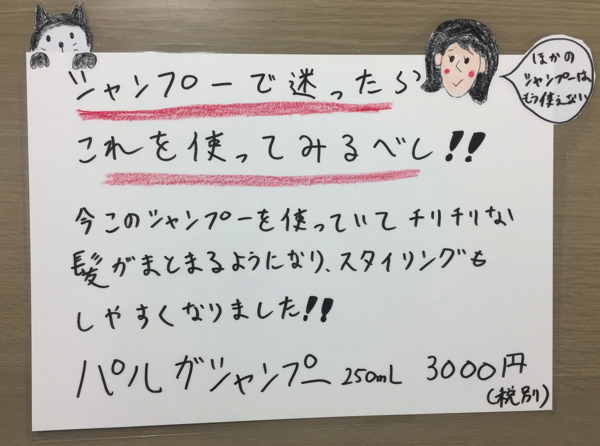 シャンプーで迷ったら
これを使ってみるべし!!
ほかの
シャンプーは、
もう使えない
今このシャンプーを使っていてチリチリな
髪がまとまるようになり、スタイリングも
しやすくなりました!!
パルガシャンプー 250mL 3000円
(税別)